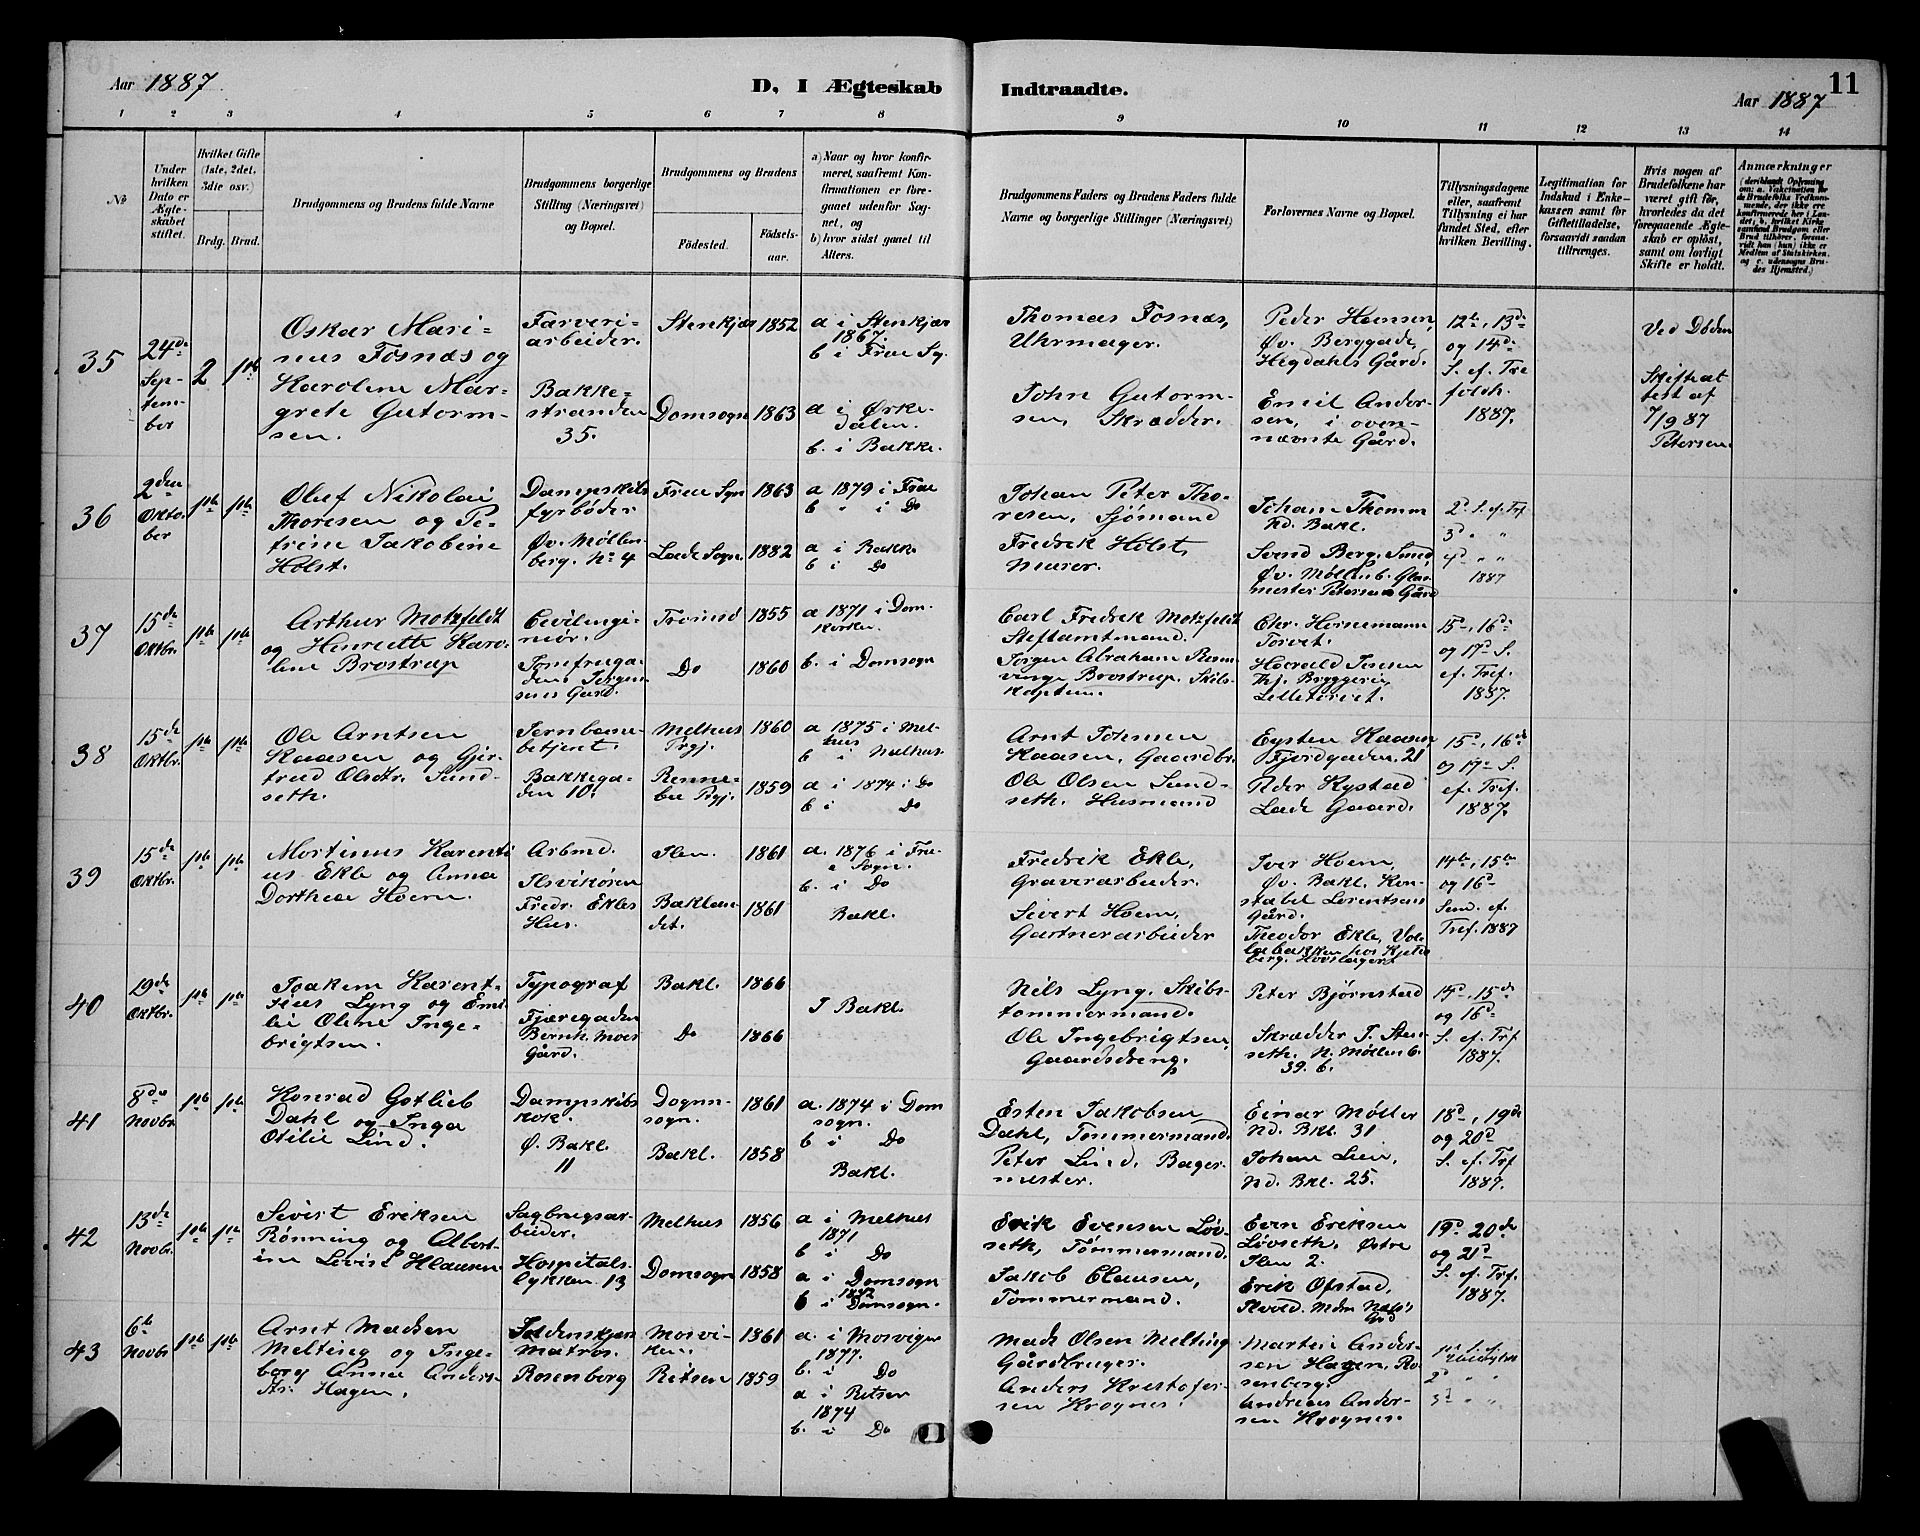 Aar 1887
D, I Ægteskab
Indtraadte.
Aar 1887
11
1 2 3 4 5 6 7 8
9 10 11 12 13 14
№
Under hvilken Dato er Ægteskabet stiftet.
Hvilket Gifte (1ste, 2det, 3die osv.)
Brdg. Brud.
Brudgommens og Brudens fulde Navne
Brudgommens borgerlige Stilling (Næringsvei) og Bopæl.
Brudgommens og Brudens
Fødested.
Fødselsaar.
a) Naar og hvor konfirmeret, saafremt Konfirmationen er foregaaet udenfor Sognet, og
b) hvor sidst gaaet til Alters.
Brudgommens Faders og Brudens Faders fulde Navne og borgerlige Stillinger (Næringsvei)
Forlovernes Navne og Bopæl.
Tillysningsdagene eller, saafremt Tillysning ei har fundet Sted, efter hvilken Bevilling.
Legitimation for Indskud i Enkekassen samt for Giftetilladelse, forsaavidt saadan tiltrænges.
Hvis nogen af Brudefolkene har været gift før, hvorledes da det foregaaende Ægteskab er opløst, samt om lovligt Skifte er holdt.
Anmærkninger
35
24de
Septem-
ber
2
1ste
Oskar Mari-
nus Fosnæs og
Karoline Mar-
grete Gutorm-
sen.
Farveri-
arbeider.
Bakke-
stranden
35.
Stenkjær 1852
Domsogn 1863
a i Stenkjær
1867.
b i Frue Sg.
a i Ørke-
dalen.
b. i Bakke.
Thomas Fosnæs,
Uhrmager.
John Gutorm-
sen, Skrædder.
Peder Hoensen,
Øv. Berggade,
Hegdahls Gård.
Emil Ander-
sen, i oven-
nævnte Gård.
12te, 13de
og 14de
S. ef. Tre
foldh.
1887.
Ved Døden
Skifteat
test af
7/9 87
Petersen.
36
2den
Oktober
1ste 1ste
Oluf Nikolai
Thoresen og Pe-
trine Jakobine
Holst.
Dampskibs
fyrbøder
Øv. Møllen
berg. No 4
Frue Sogn 1863
Lade Sogn. 1882
a 1879 i Frue
b " i Do
a i Bakke
b i Do
Johan Peter Tho-
resen, Sjømand
Fredrik Holst,
Murer.
Johan Thomm
Nd. Bakl.
Svend Berg. Smed
Øv. Møllenb. Glar
mester Petersens Gård
2d S. ef. Trf
3d " "
4d " "
1887
37
15de
Oktbr.
1ste 1ste
Arthur Motzfeldt
og Henriette Karo-
line Brostrup
Civilingi-
niør.
Jomfruga-
den Jørgen-
sens Gård.
Tromsø 1855
Do 1860
a 1871 i Dom-
kirken.
b. i Domsogn
Carl Fredrik Motzfeldt
Stiftamtmand.
Jørgen Abraham Rosen
vinge Brostrup. Skibs-
kaptein.
Chr. Hornemann
Torvet.
Harald Jensen
Thj. Bryggeri,
Lilletorvet.
15de, 16de
og 17de S.
ef. Tref.
1887.
38
15de
Oktbr.
1ste 1ste
Ole Arntsen
Kaasen og Gjer-
trud Olsdtr. Sund-
seth.
Jernbane-
betjent.
Bakkega-
den 10.
Melhus 1860
Prgj.
Renne-
bu Prgj. 1859
a 1875 i Mel-
hus
b i Melhus
a i 1874 i Do
b i Do
Arnt Johnsen
Kaasen, Gaardbr.
Ole Olsen Sund-
seth. Husmand
Eysten Kaasen,
Fjordgaden. 21
Peder Rystad
Lade Gaard.
15de, 16de
og 17de S.
ef. Tref.
1887.
39
15de
Oktbr.
1ste 1ste
Martinus Karenti
us Ekle og Anna
Dorthea Hoem.
Arbmd.
Ilsvikøren
Fredr. Ekles
Hus.
Ilen. 1861
Baklan-
det. 1861
a. 1876 i Fru-
e Sogn.
b. i Do
Bakl.
Fredrik Ekle,
Graverarbeider.
Sivert Hoem,
Gartnerarbeider
Iver Hoem,
Øv. Bakl. Kon-
stabel Lorentsens
Gård.
Theodor Ekle,
14de, 15de
og 16de
Sønd. ef.
Tref. 1887
40
19de
Oktbr.
1ste 1ste
Joakim Karent-
sius Lyng og Emi
lie Oline Inge-
brigtsen.
Typograf
Fjæregaden
Bernh. Moes
Gård.
Bakl. 1866
Do 1866
I Bakl.
Nils Lyng, Skibs-
tømmermand.
Ole Ingebrigtsen,
Gaardsdreng.
Peter Bjørnstad
Skrædder J. Sten-
seth. N. Møllenb.
39. b.
14de, 15de
og 16de
S. ef. Trf
1887.
41
8de
Novbr.
1ste 1ste
Konrad Gotlieb
Dahl og Inga
Otilie Lind.
Dampskibs
kok.
Ø. Bakl.
11
Domsogn. 1861
Bakl. 1858
a. 1874 i Dom
sogn.
b i Do
Bakl.
Esten Jakobsen
Dahl, Tømmermand.
Peter Lind. Bager-
mester.
Einar Møller
Nd. Bkl. 31
Johan Lien,
Nd. Bkl. 25.
18de, 19de
og 20de
S. ef. Trf
1887.
42
13de
Novbr.
1ste 1ste
Sivert Eriksen
Rønning og Albert-
ine Lovise Klausen
Sagbrugsar-
beider.
Hospitals-
lykken. 13
Melhus 1856
Domsogn 1858
a i Melhus
1871
b i Do
a i Domsogn
1872
b i Domsogn.
Erik Evensen Løv-
seth, Tømmermand.
Jakob Clausen,
Tømmermand.
Even Eriksen
Løvseth. Østre
Ilen 2.
Erik Øfstad,
19de 20de
og 21de
S. ef. Trf.
1887.
43
6te
Novbr
1ste 1ste
Arnt Madsen
Melting og Inge-
borg Anna Anders-
dtr. Hagen.
Matros.
Rosenborg
Mosvi-
ken. 1861
Ritsen 1859
a. i Mosvigen
1877.
b. i Do
a i Ritsen
1874
b. i Do
Mads Olsen Melting
Gårdbruger.
Anders Kristofer-
sen Krognes.
Martin Ander-
sen Hagen, Ro-
senborg.
Andreas Ander-
sen Krognes.
2d " "
3d " "